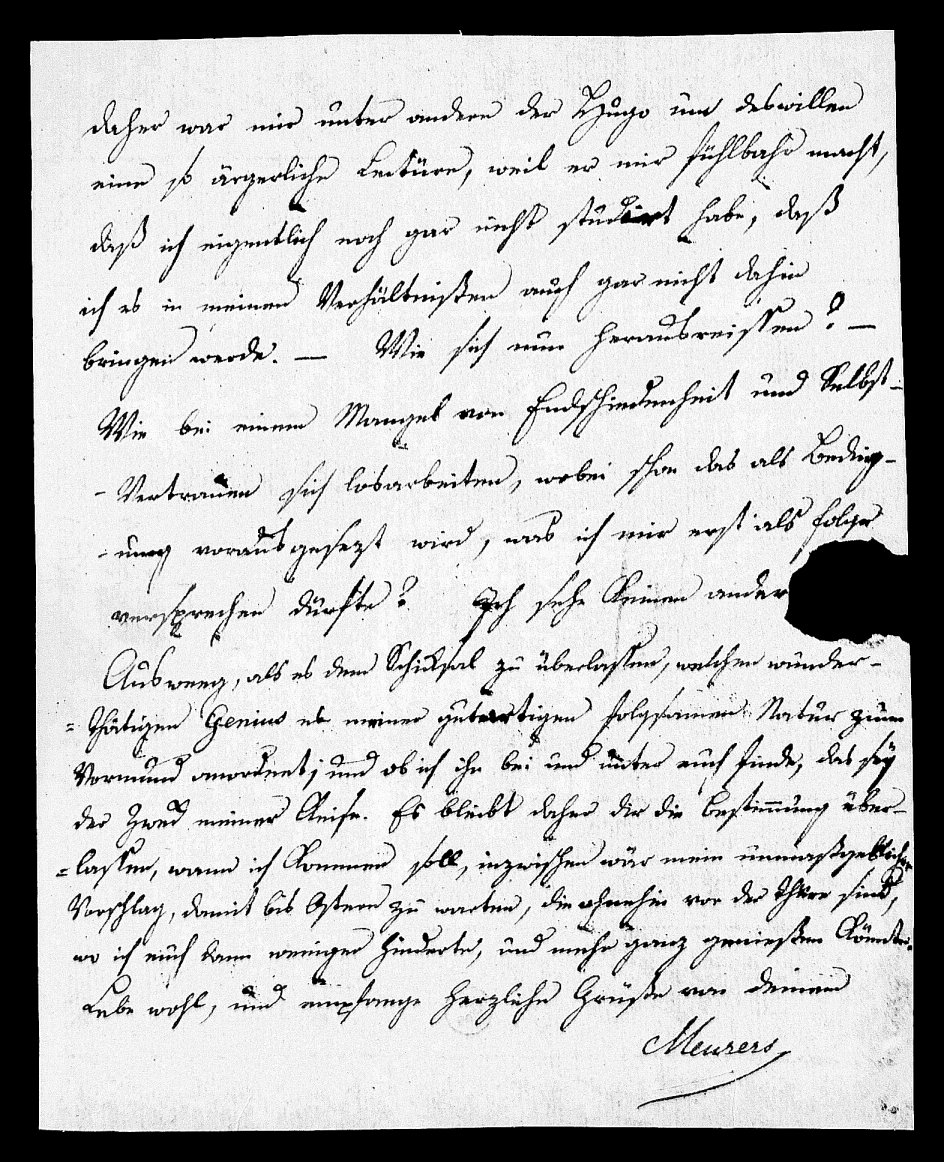 daher war mir unter andern der Hugo um deswillen
eine so ärgerliche Lectüre, weil er mir fühlbahr macht,
daß ich eigentlich noch gar nicht studiert habe, daß
ich es in meinen Verhältnißen auch gar nicht dahin
bringen werde. — Wie sich nun herausreissen? —
Wie bei einem Mangel von Endschiedenheit und Selbst-
-Vertrauen sich losarbeiten, wobei schon das als Beding-
-ung vorausgesezt wird, was ich mir erst als Folge
versprechen dürfte? Ich sehe keinen ander
Ausweeg, als es dem Schicksal zu überlassen, welchen wunder-
=thätigen Genius es meiner gutartigen folgsamen Natur zum
Vormund anordnet; und ob ich ihn bei und unter euch finde, das sey
der Zweck meiner Reise. Es bleibt daher dir die Bestimmung über-
=lassen, wann ich kommen soll, inzwischen wär mein unmaßgeblicher
Vorschlag, damit bis Ostern zu warten, die ohnehin vor der Thüre sind,
wo ich euch dann weniger hinderte, und mehr ganz genießen könnte.
Lebe wohl, und empfange herzliche Grüße von deinem
Meurers